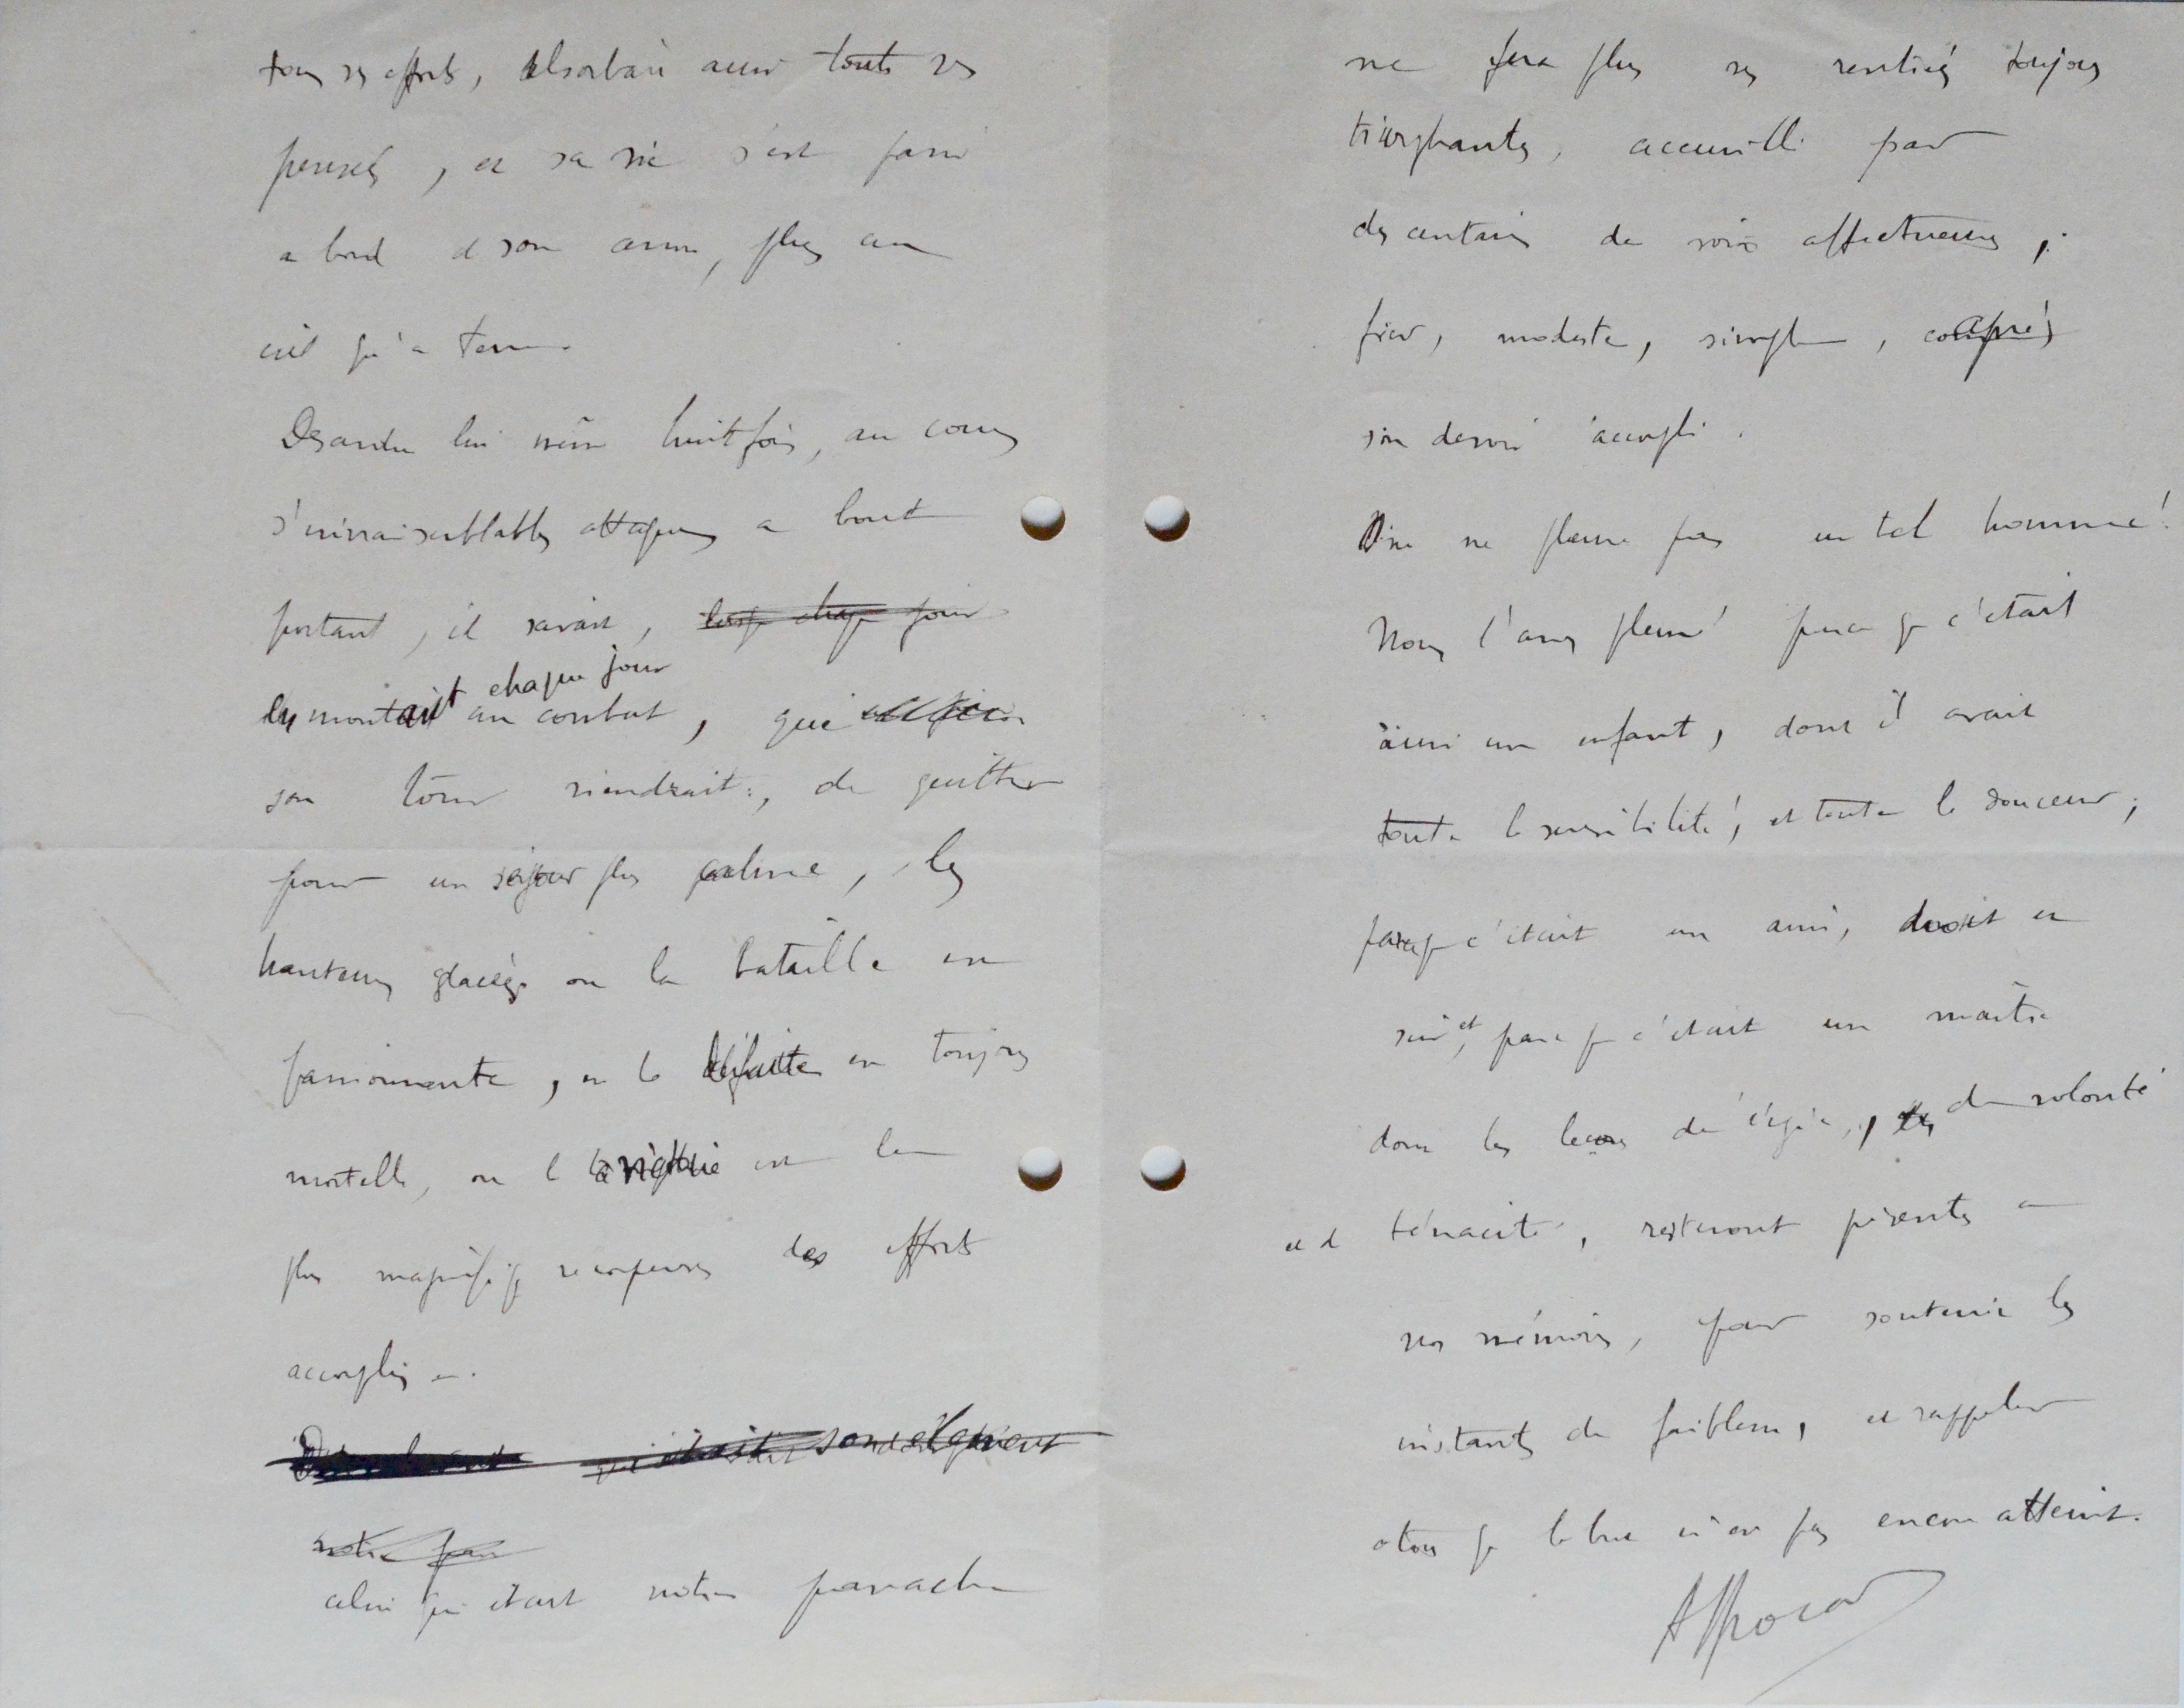 tous ses efforts, absorbait aussi toutes ses
pensées, et sa vie s'est passé
a bord de son avion, plus au
ciel qu'a terre.
Descendu lui même huit fois, au cours
d'invraisemblables attaques a bout
portant, il savait, lorsque chaque jour
chaque jour
les montait au combat, que
son tour viendrait, de quitter
pour un séjour plus calme, les
hauteurs glacées ou la bataille est
passionnante, ou la défaite est toujours
mortelle, ou la victoire est la
plus magnifique recompense des efforts
accomplis.
qui était son élément
notre
celui qui était notre panache
ne fera plus ses rentrées toujours
triomphantes, accueilli par
des centaines de voix affectueuses,
fier, modeste, simple, après
son devoir accompli.
ne pleure pas un tel homme!
Nous l'avons pleuré parce que c'était
aussi un enfant, dont il avait
toute la sensibilité, et toute la douceur,
parce que c'était un ami, droit et
sûr, et parce que c'était un maître
dont les leçons de, de volonté
et de ténacité, resteront présentes a
nos mémoires, pour soutenir les
instants de faiblesse, et rappeler
a tous que le but n'est pas encore atteint.